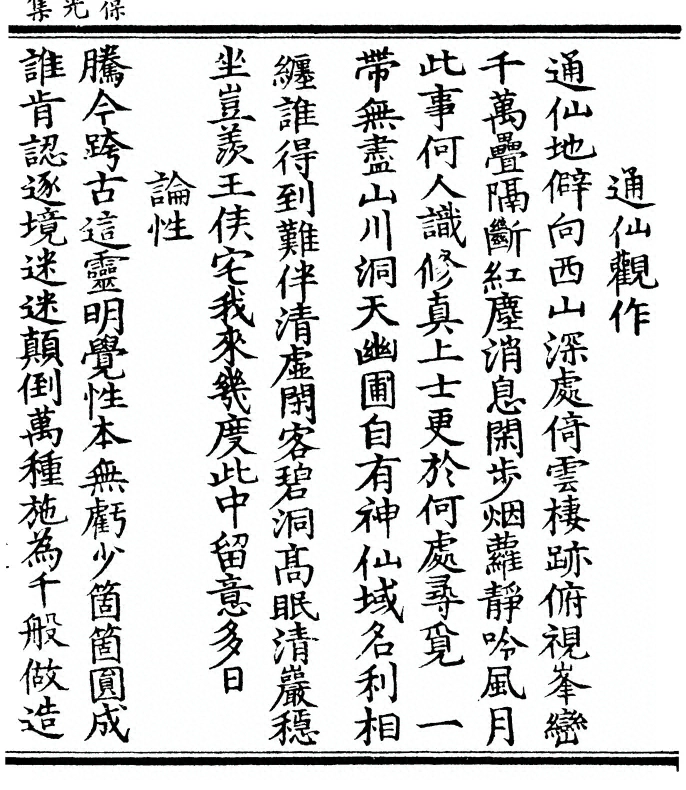 保光集
通仙觀作
通仙地僻向西山深處倚雲棲跡俯視峯巒
千萬疊隔斷紅塵消息閑步烟蘿靜吟風月
此事何人識修真上士更於何處尋覓　一
帶無盡山川洞天幽圃自有神仙域名利相
纏誰得到難伴清虛閑客碧洞高眠清巖穩
坐豈羨王侯宅我來幾度此中留意多日
論性
騰今跨古這靈明覺性本無虧少箇箇圓成
誰肯認逐境迷迷顛倒萬種施為千般做造